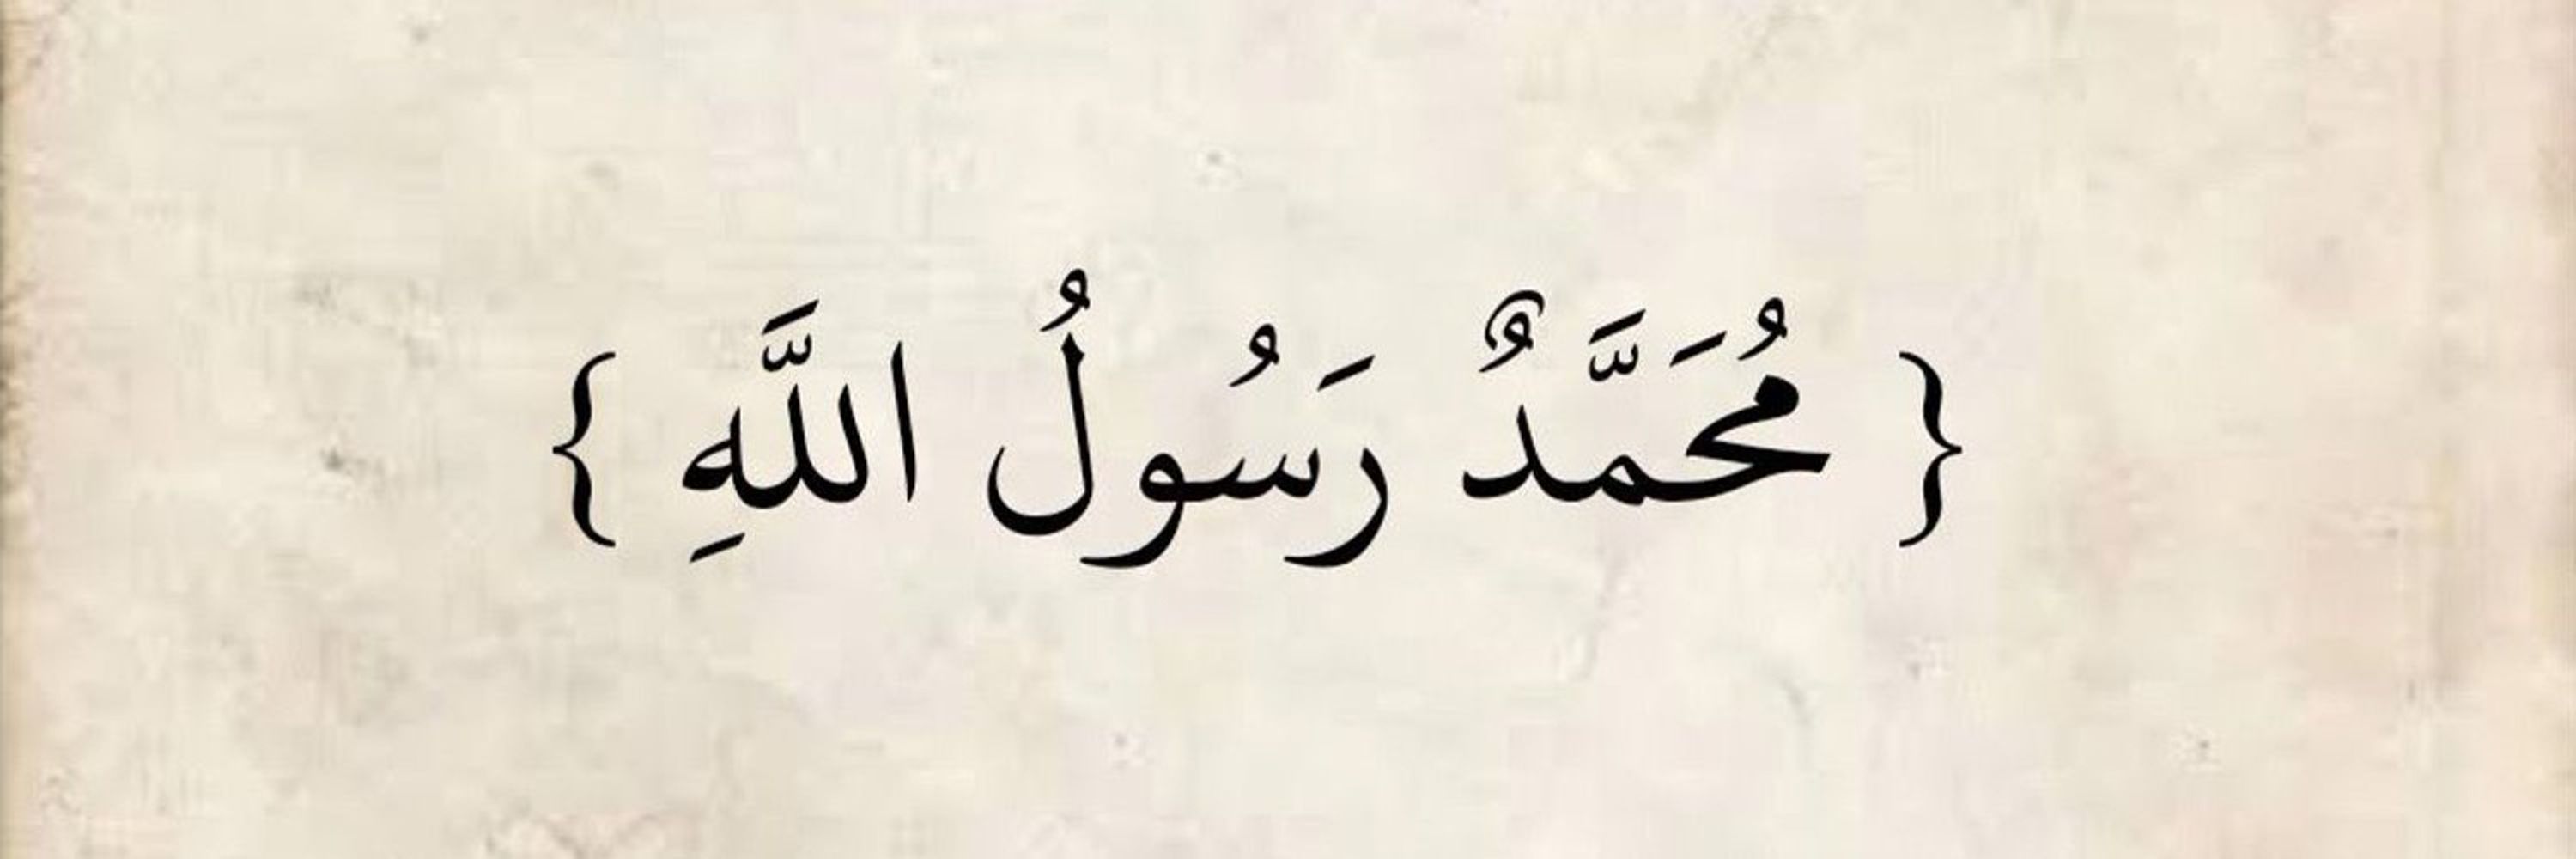 { مُحَمَّدٌ رَسُولُ اللَّهِ }